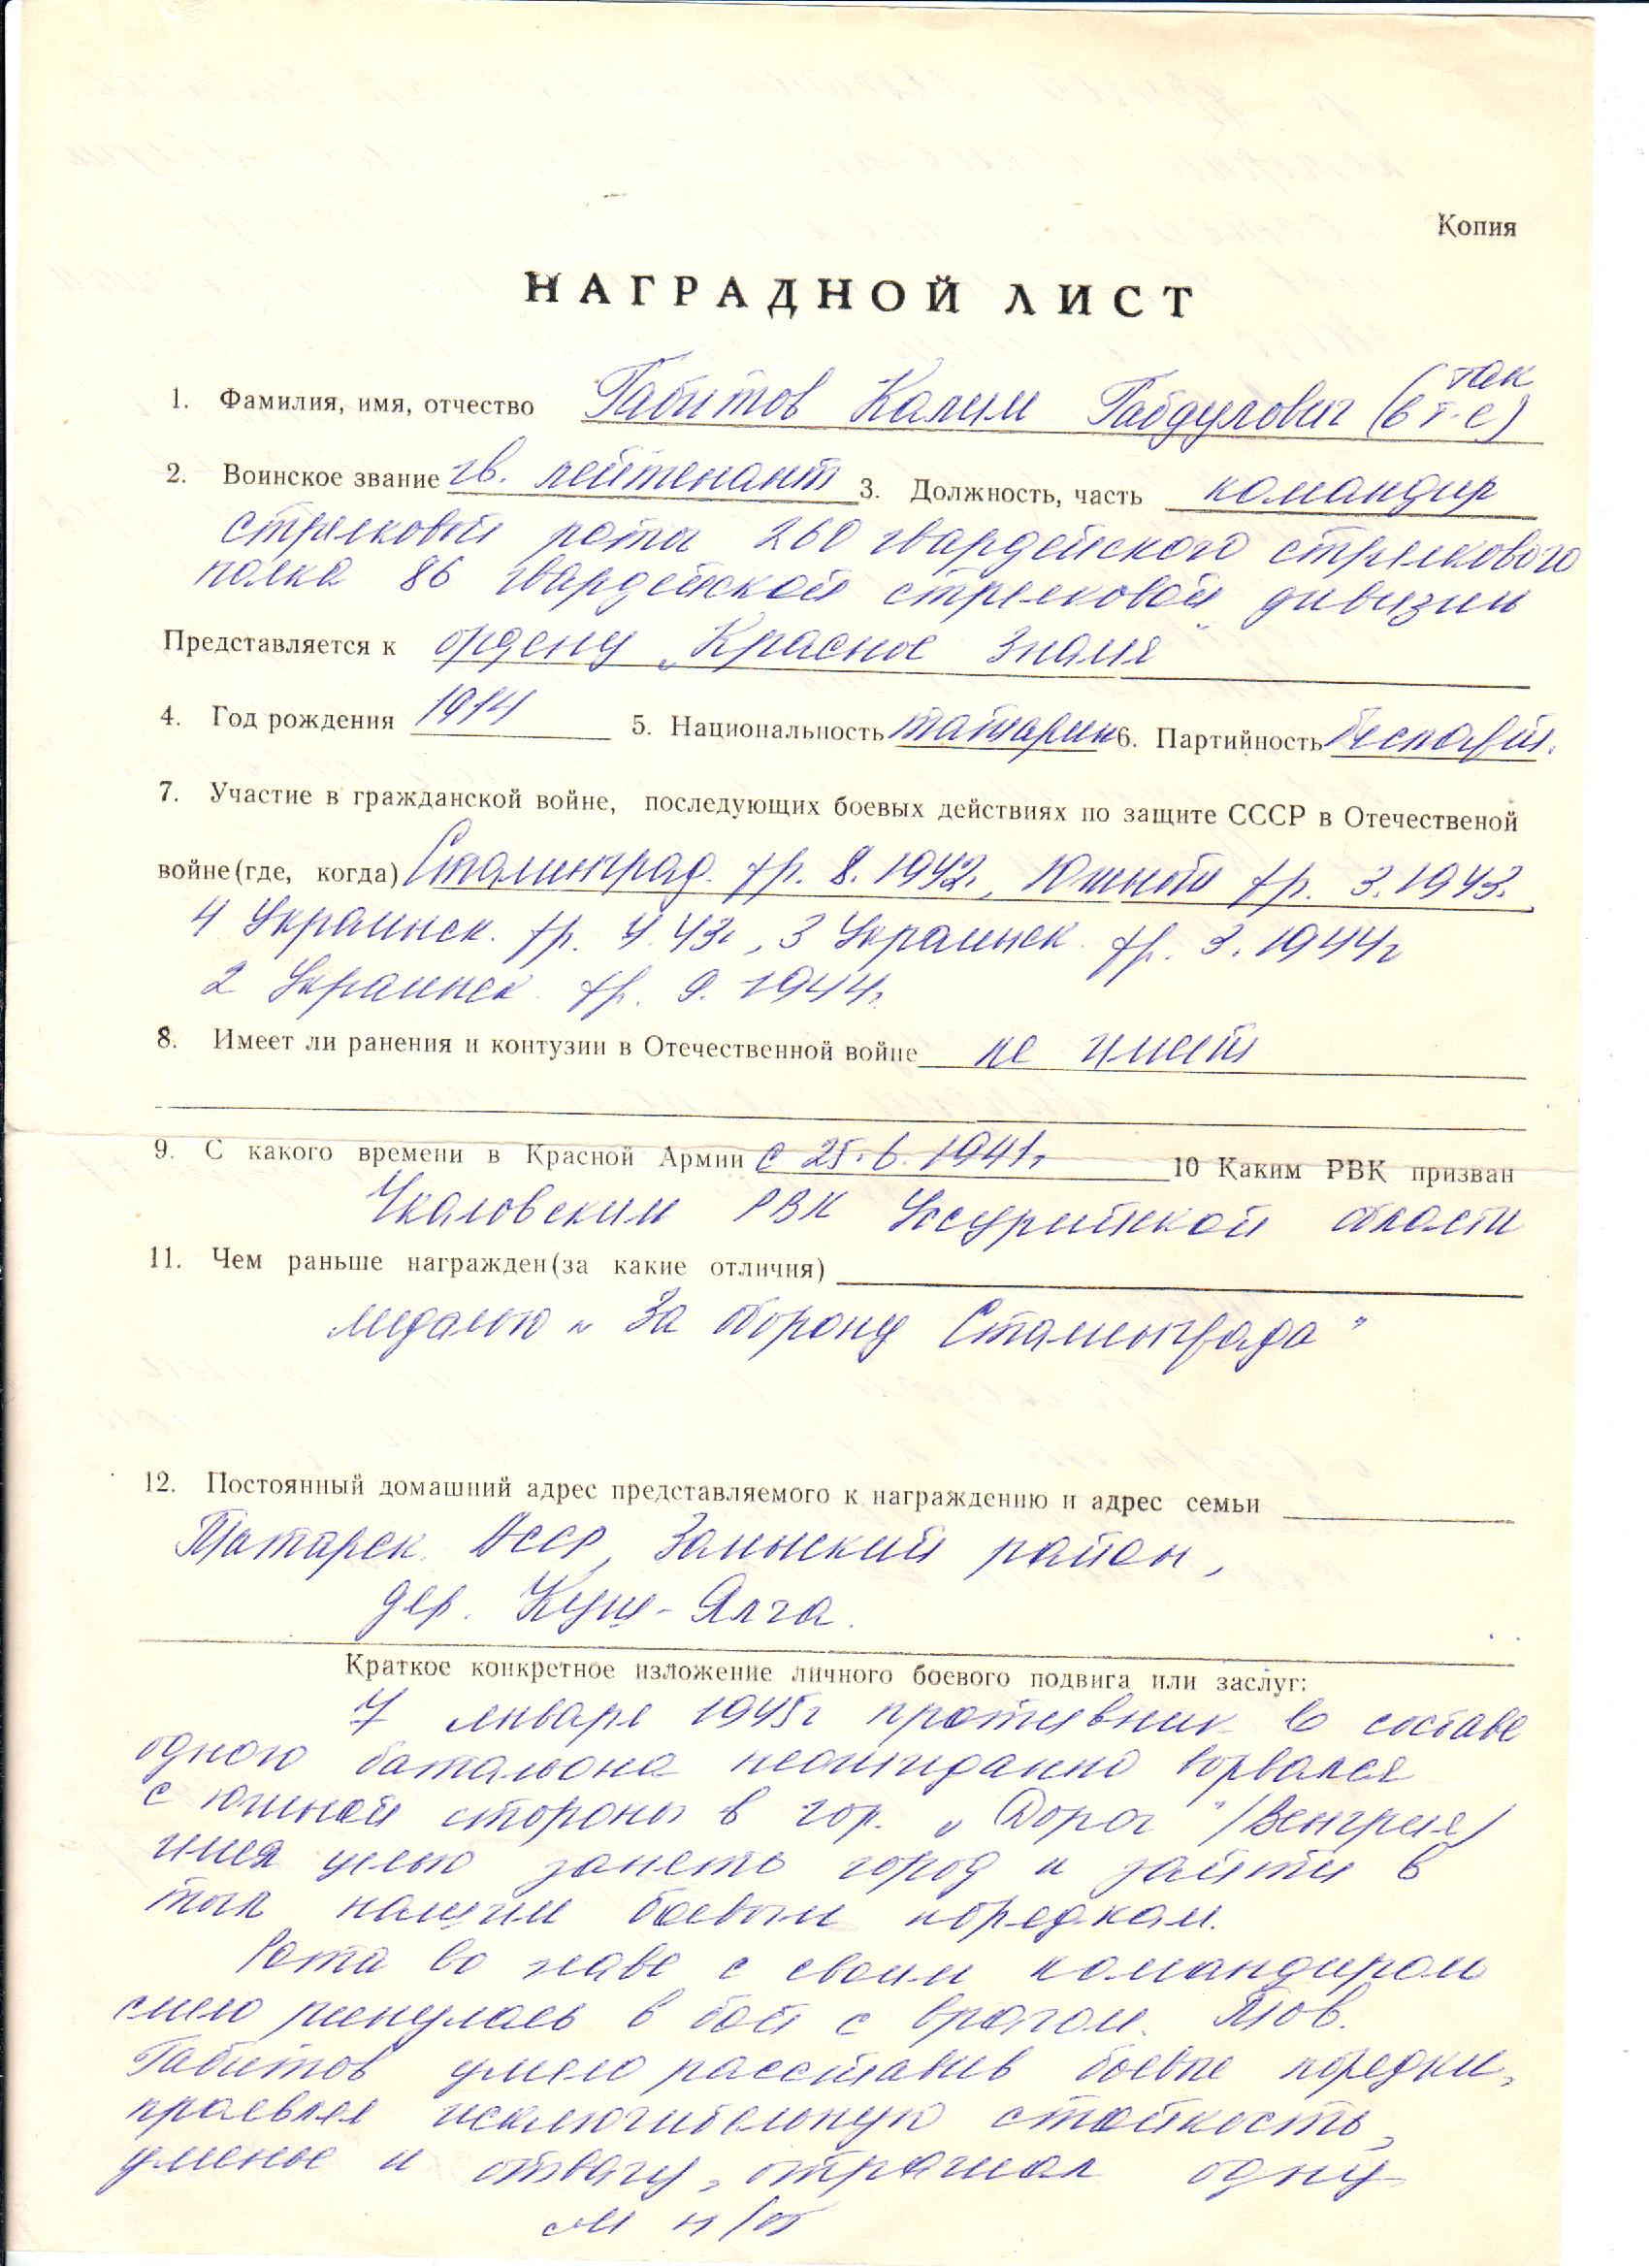 Копия
НАГРАДНОЙ ЛИСТ
1. Фамилия, имя, отчество Габитов Калим Габдулович (так в т-е)
2. Воинское звание гв. лейтенант 3. Должность, часть командир
стрелковой роты 260 гвардейского стрелкового
полка 86 гвардейской стрелковой дивизии
Представляется к ордену „Красное Знамя"
4. Год рождения 1914 5. Национальность татарин 6. Партийность беспарт.
7. Участие в гражданской войне, последующих боевых действиях по защите СССР в Отечественой
войне (где, когда) Сталинград. фр. 8.1942., Южной фр. 3.1943.
4 Украинск. фр. 4.43г, 3 Украинск. фр. 3.1944г
2 Украинск. фр. 9.1944г.
8. Имеет ли ранения и контузии в Отечественной войне не имеет
9. С какого времени в Красной Армии с 25.6.1941г. 10 Каким РВК призван
Чкаловским РВК Уссурийской области
11. Чем раньше награжден (за какие отличия)
медалью „За оборону Сталинграда"
12. Постоянный домашний адрес представляемого к награждению и адрес семьи
Татарск. АССР, Заинский район,
дер. Куш-Ялга.
Краткое конкретное изложение личного боевого подвига или заслуг:
7 январе 1945г противник в составе
одного батальона неожиданно ворвался
с южной стороны в гор. „Дорог" /Венгрия/
имея целью занять город и зайти в
тыл нашим боевым порядкам.
Рота во главе с своим командиром
смело ринулась в бой с врагом. Тов.
Габитов умело расставив боевые порядки,
проявляя исключительную стойкость,
умение и отвагу, отражал одну
см н/об